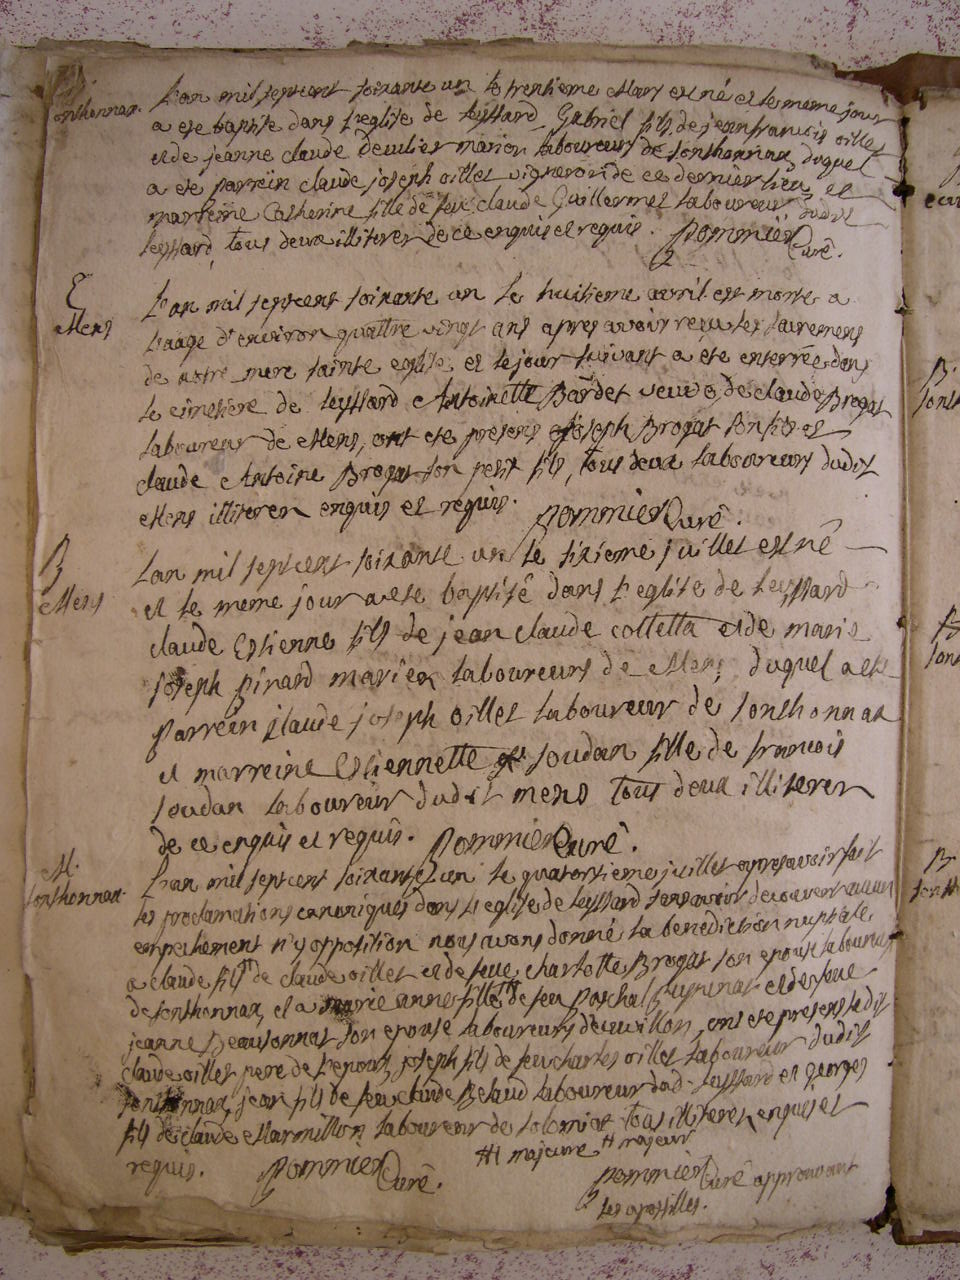 Sonthonnax
L'an mil sept cent soixante un le trentieme Mars est né et le meme jour
a ete baptisé dans l'eglise de leyssard Gabriel fils de jean francois oillet
et de jeanne claude mariez laboureurs de sonthonnax, duquel
a ete parrein claude joseph oillet vigneron de ce dernier lieu, et
marreine Catherine fille de feu claude Guillermet laboureur dudit
leyssard, tous deux illiterez de ce enquis et requis. pommier Curé.
E
Mens
L'an mil sept cent soixante un le huitieme avril est morte a
l'aage d'environ quattre vingt ans apres avoir reçu les sacremens
de notre mere sainte eglise, et le jour suivant a ete enterrée dans
le cimetiere de leyssard Antoinette Bardet veuve de claude Brogat
laboureur de Mens, ont ete presens joseph Brogat son fils et
claude Antoine Brogat son petit fils, tous deux laboureurs dudit
Mens illiterez enquis et requis. pommier Curé.
B
Mens
L'an mil sept cent soixante un le sixieme juillet est né
et le meme jour a ete baptisé dans l'eglise de leyssard
claude Estienne fils de jean claude colletta et de marie
joseph pirard mariez laboureurs de Mens, duquel a ete
parrein claude joseph oillet laboureur de sonthonnax
et marreine Estiennette soudan fille de francois
soudan laboureur dudit mens tous deux illiterez
de ce enquis et requis. pommier curé.
M.
sonthonnax
L'an mil sept cent soixante un le quatorzieme juillet apres avoir fait
les proclamations canoniques dans l'eglise de leyssard sans avoir decouvert aucun
empechement n'y opposition nous avons donné la benediction nuptiale
a claude fils # de claude oillet et de feue charlotte Brogat son epouse laboureurs
de sonthonnax, et a marie anne fille ## de feu paschal et de feue
jeanne Beausonnat son epouse laboureurs, ont ete presens ledit
claude oillet pere de l'epoux, joseph fils de feu charles oillet laboureur dudit
sonthonnax, jean fils de feu claude Belaud laboureur dud. leyssard et georges
fils de claude Marmillon laboureur de solomiat tous illiterez enquis et
requis. pommier Curé.
## majeure # majeur
pommier Curé approuvant
les apostilles.
B.
sont
B
sont
B
sonth